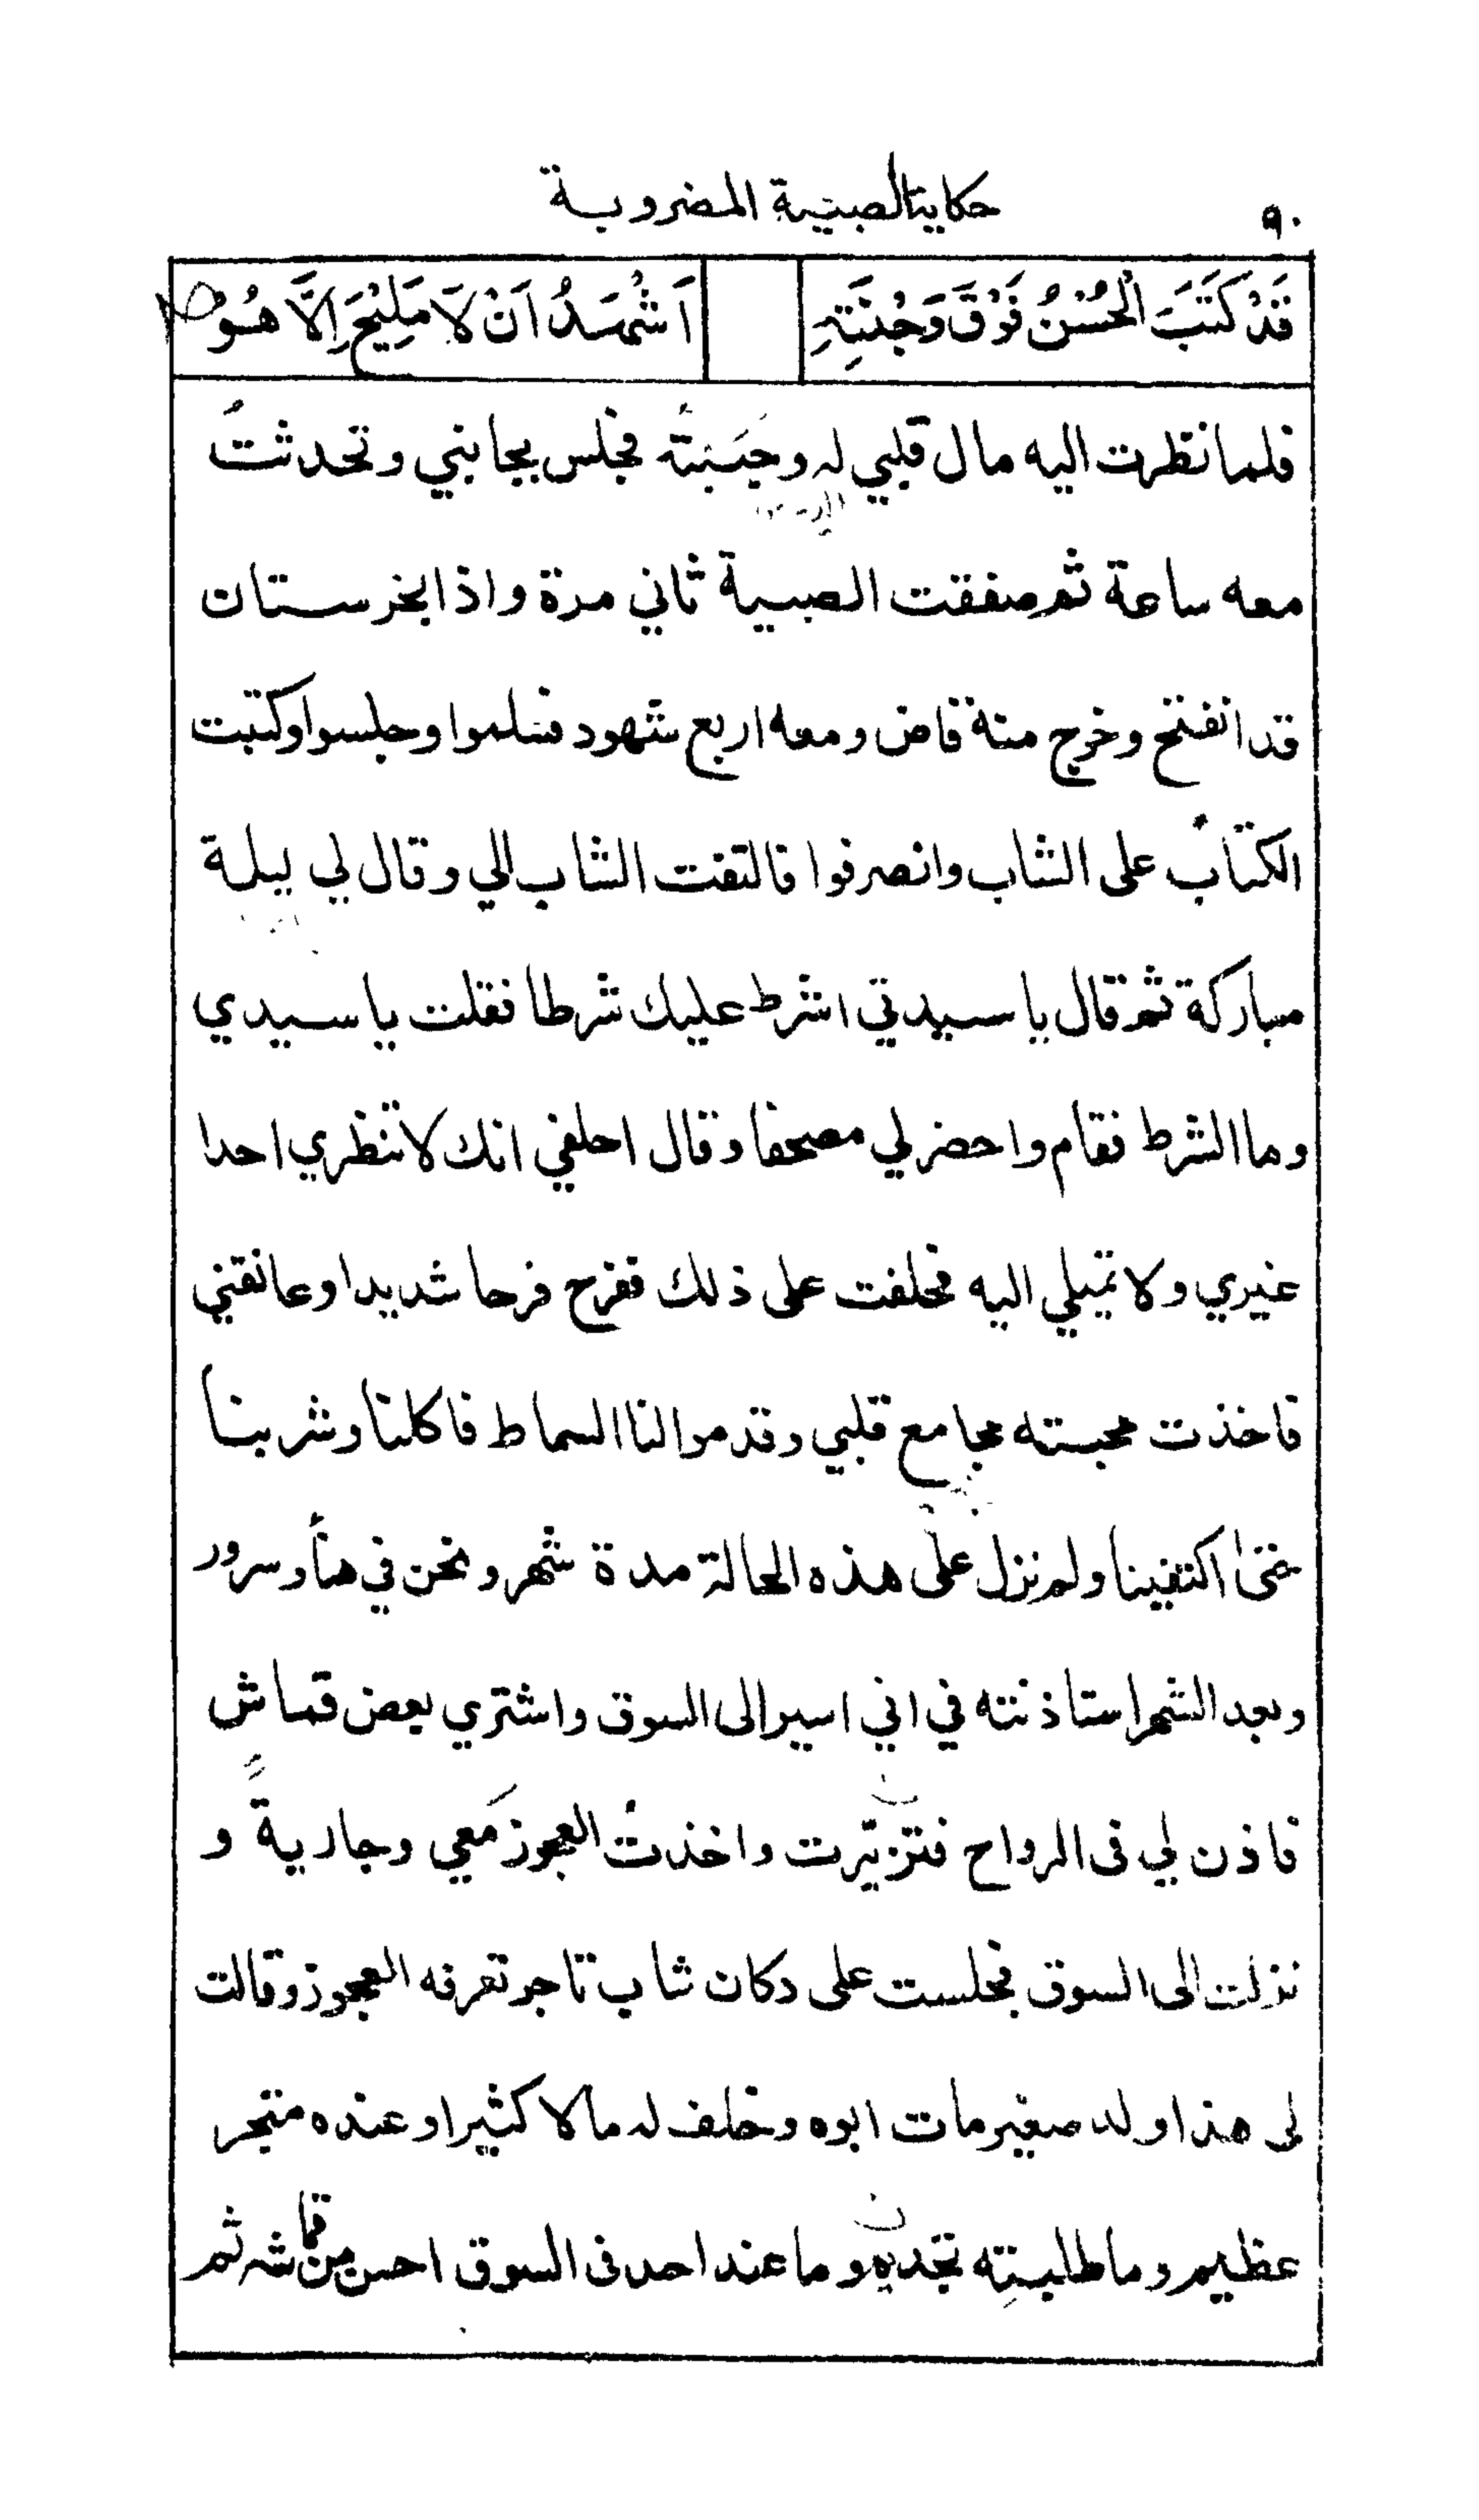 ٩٠ حكاية الصبية المضروبة
قَدْ كَتَبَ الْحُسْنُ فَوْقَ وَجْنَتِهِ اَشْهَدُ اَنْ لَا مَلِيْحَ اِلَّا هُو
فلما نظرت اليه مال قلبي له وحَبَبْتُه فجلس بجانبي وتحدثتُ
معه ساعة ثم صفقت الصبية ثاني مرة واذا بخرستان
قد انفتح وخرج منه قاض ومعه اربع شهود فسلموا وجلسوا وكتبت
الكتاب على الشاب وانصرفوا فالتفت الشاب الي وقال لي ليلة
مباركة ثم قال يا سيدتي اشرط عليك شرطا فقلت يا سيدي
وما الشرط فقام واحضر لي مصحفا وقال احلفي انك لا تنظري احدا
غيري ولا تميلي اليه فحلفت على ذلك ففرح فرحا شديدا وعانقني
فاخذت محبته مجامع قلبي وقدموا لنا السماط فاكلنا وشربنا
حتى اكتفينا ولم نزل على هذه الحالة مدة شهر ونحن في هنأ وسرور
وبعد الشهر استاذنته في اني اسير الى السوق واشتري بعض قماش
فاذن لي فى الرواح فتزيّرت واخذتُ العجوز مَعي وجاريةً و
نزلت الى السوق فجلست على دكان شاب تاجر تعرفه العجوز وقالت
لى هذا ولد صغير مات ابوه وخلف له مالا كثيرا وعنده متجر
عظيم وما طلبتِه تجديه وما عند احد فى السوق احسن من قماشه ثم